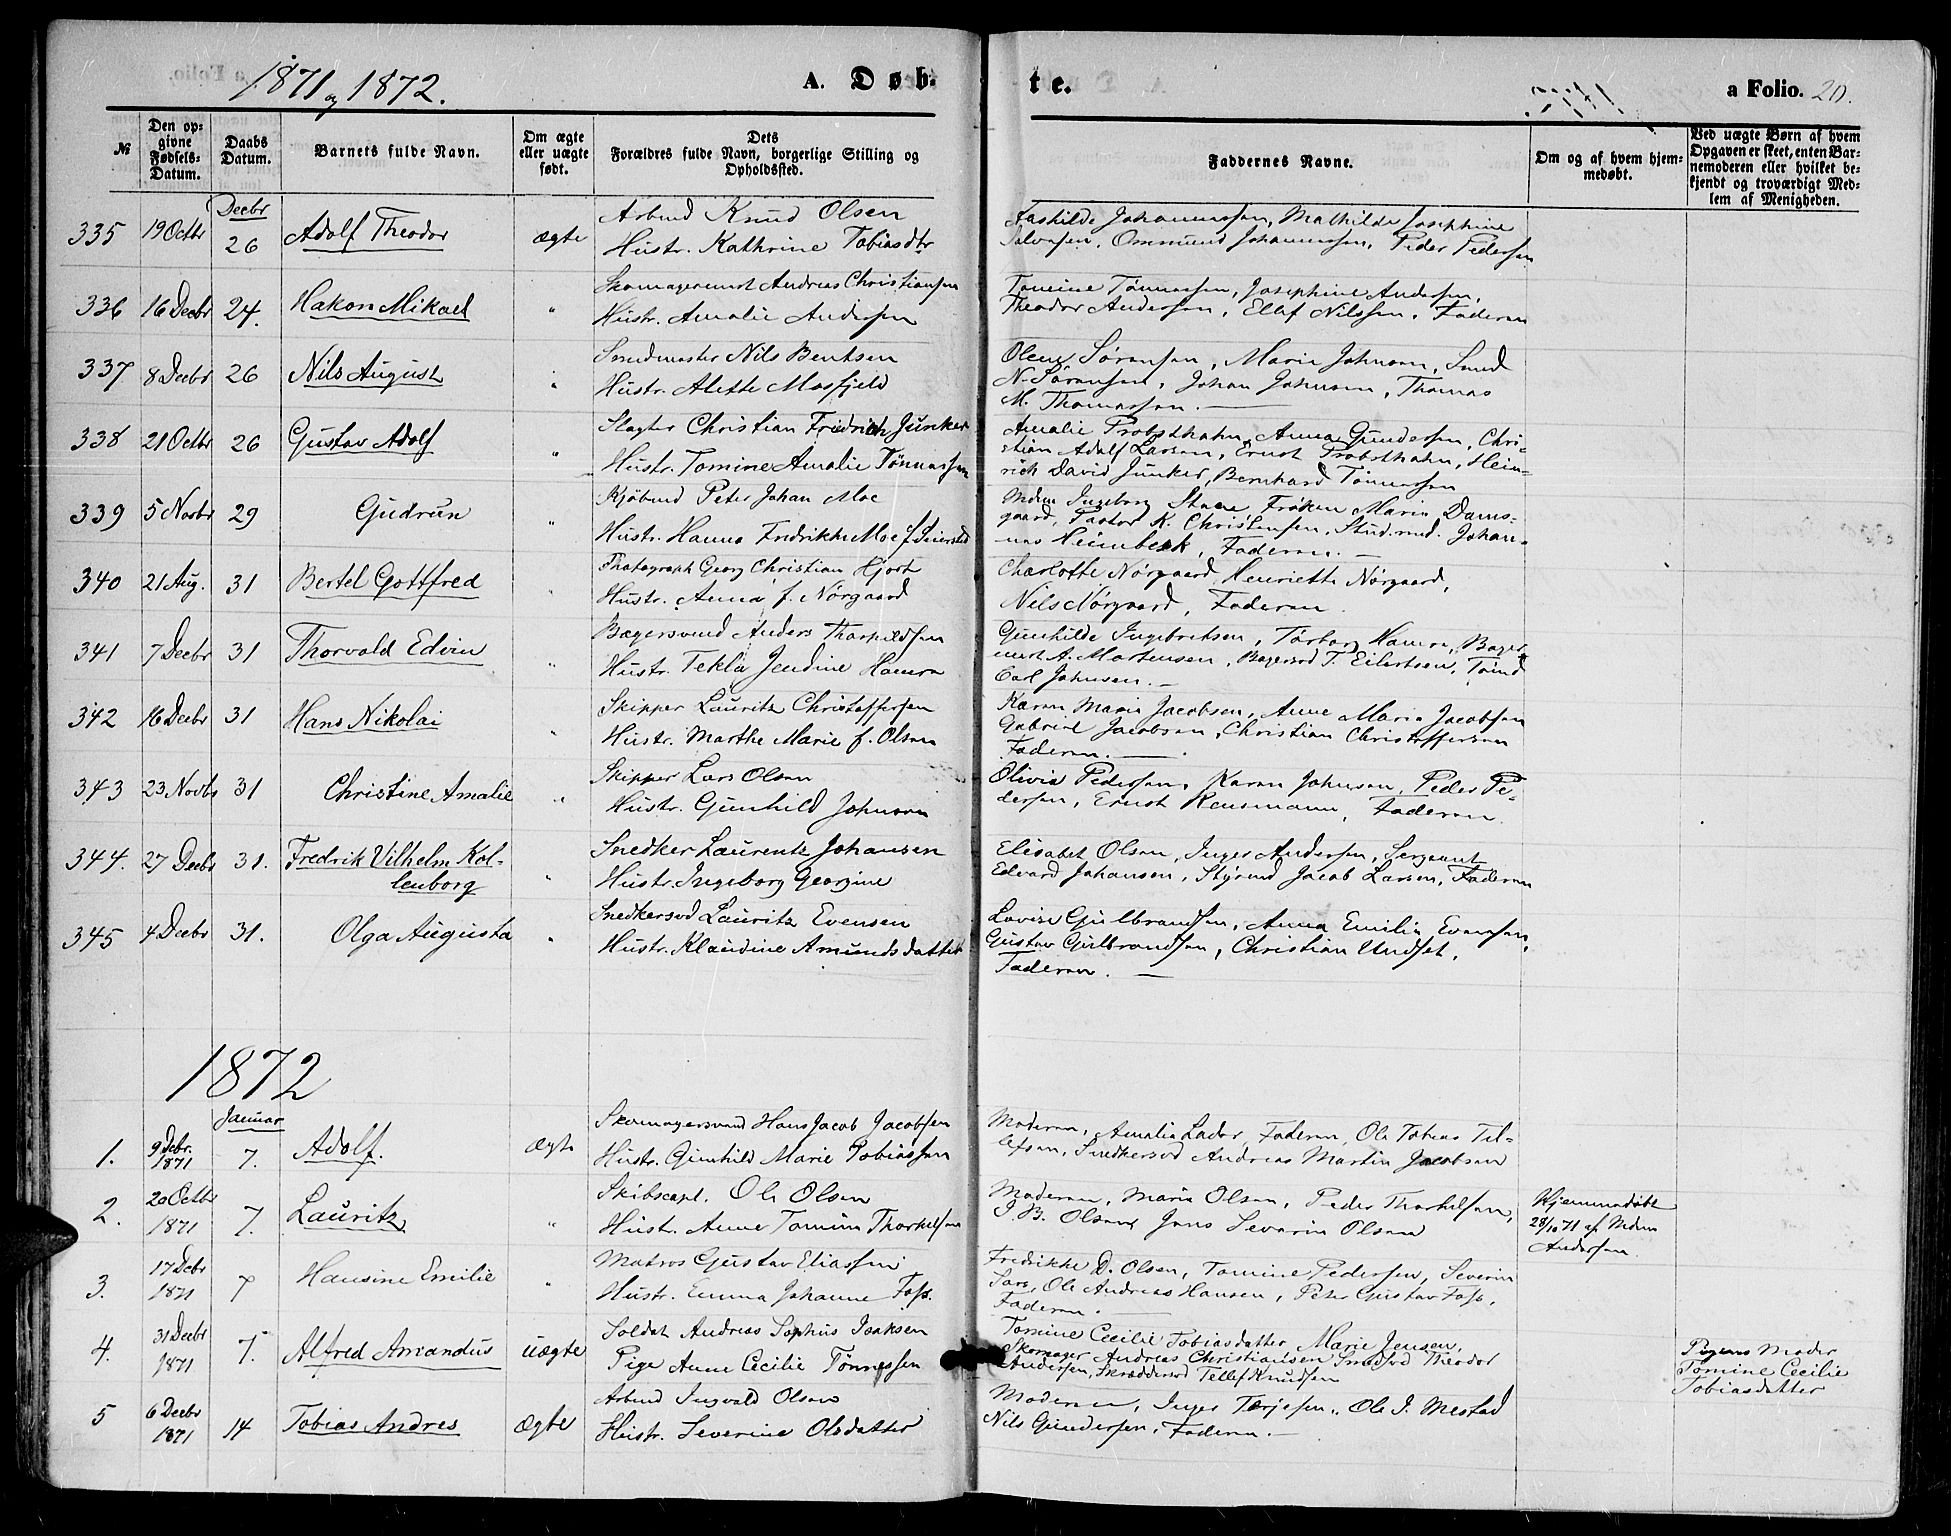 1871 og 1872.
A. Døb-
te.
a Folio. 20.
№
Den op-
givne
Fødsels-
Datum.
Daabs
Datum.
Barnets fulde Navn.
Om ægte
eller uægte
født.
Dets
Forældres fulde Navn, borgerlige Stilling og
Opholdssted.
Faddernes Navne.
Om og af hvem hjem-
medøbt.
Ved uægte Børn af hvem
Opgaven er skeet, enten Bar-
nemoderen eller hvilket be-
kjendt og troværdigt Med-
lem af Menigheden.
Decbr
335 19 Octbr 26 Adolf Theodor ægte
Arbmd Knud Olsen
Hustr. Kathrine Tobiasdtr
Johannessen, Mathilde Josephine
Salvesen, Ommund Johannessen, Peder Pedersen
336 16 Decbr 24. Hakon Mikael "
Skomagermst Andreas Christiansen
Hustr. Amalie Andersen
Tomine Tønnessen, Josephine Andersen,
Theodor Andersen, Ellef Nilssen, Faderen
337 8 Decbr 26 Nils August "
Smedmester Nils Bentsen
Hustr. Alette Mosfjeld
Olene Sørensen, Marie Johnsen, Smed
N. Sørensen, Johan Johnsen, Thomas
M. Thomassen.
338 21 Octbr 26 Gustav Adolf "
Slagter Christian Fredrich Junker
Hustr. Tomine Amalie Tønnessen
Amalie Probsthahn, Anna Gundersen, Chri-
stian Adolf Larsen, Ernst Probsthahn, Hein-
rich David Junker, Bernhard Tønnessen
339 5 Novbr 29 Gudrun "
Kjøbmd Peter Johan Moe
Hustr. Hanna Fredrikke Moe f.
Mdme Ingeborg Frøken Marie Dams-
gaard, Pastor K. Christensen, Stud. med. Johan-
nes Heimbeck, Faderen.
340 21 Aug. 31 Bertel Gottfred "
Photograph Georg Christian Hjort
Hustr. Anna f. Nørgaard
Charlotte Nørgaard, Henriette Nørgaard,
Nils Nørgaard, Faderen.
341 7 Decbr 31 Thorvald Edvin "
Bagersvend Anders Thorkildsen
Hustr. Tekla Jendine Hamre
Gunhilde Ingebretsen, Torborg Hamre, Bager-
mest A. Mortensen, Bagersvd T. Eilertsen, Tømd
Carl Johnsen.
342 16 Decbr 31 Hans Nikolai "
Skipper Lauritz Christoffersen
Hustr. Marthe Marie f. Olsen
Karen Marie Jacobsen, Anne Marie Jacobsen
Gabriel Jacobsen, Christian Christoffersen
Faderen.
343 23 Novbr 31 Christine Amalie "
Skipper Lars Olsen
Hustr. Gunhild Johnsen
Olivia Pedersen, Karen Johnsen, Peder Pe-
dersen, Ernst Faderen.
344. 27 Decbr 31. Fredrik Vilhelm Kol-
lenborg "
Snedker Laurentz Johansen
Hustr. Ingeborg Georgine
Elisabet Olsen, Inger Andersen, Sergeant
Edvard Johansen, Styrmd Jacob Larsen, Faderen
345 4 Decbr 31. Olga Augusta "
Snedkersvd Lauritz Evensen
Hustr. Klaudine Amundsdatter
Lovise Gulbrandsen, Anna Emilie Evensen,
Gustav Gulbrandsen, Christian Undset,
Faderen.
1872
Januar
1. 9 Decbr. 1871 7. Adolf. Ægte
Skomagersvend Hans Jacob Jacobsen
Hustr. Gunhild Marie Tobiassen
Moderen, Amalia Lador, Faderen, Ole Tobias Tel-
lefsen, Snedkersvd Andreas Martin Jacobsen
2. 20 Octbr 1871 7. Lauritz "
Skibscapt. Ole Olsen
Hustr. Anne Tomine Thorkelsen
Moderen, Maria Olsen, Peder Thorkelsen,
J. B. Olsen, Jens Severin Olsen
Hjemmedøbt
28/10 71 af Mdm
Andersen.
3. 17 Decbr 1871 7 Hansine Emilie "
Matros Gustav Eliassen
Hustr. Emma Johanne Foss.
Fredrikke D. Olsen, Tomine Pedersen, Severin
Ole Andreas Hansen, Peter Gustav Foss,
Faderen.
4. 31 Decbr 1871 7. Alfred Amandus uægte
Soldat Andreas Sophus Isaksen
Pige Anne Cecilie Tønnessen
Tomine Cecilie Tobiasdatter, Marie Jensen,
Skomager Andreas Christiansen Smedsvd Theodor
Andersen, Skræddersvd Tellef Knudsen
Pigens Moder
Tomine Cecilie
Tobiasdatter
5 6 Decbr 1871 14 Tobias Andres Ægte
Arbmd Ingvald Olsen
Hustr. Severine Olsdatter
Moderen, Inger Terjesen, Ole J. Mestad
Nils Gundersen, Faderen.